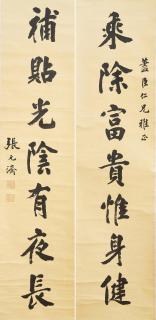 藎臣仁兄雅正
乘除富貴惟身健
補貼光陰有夜長
張元濟